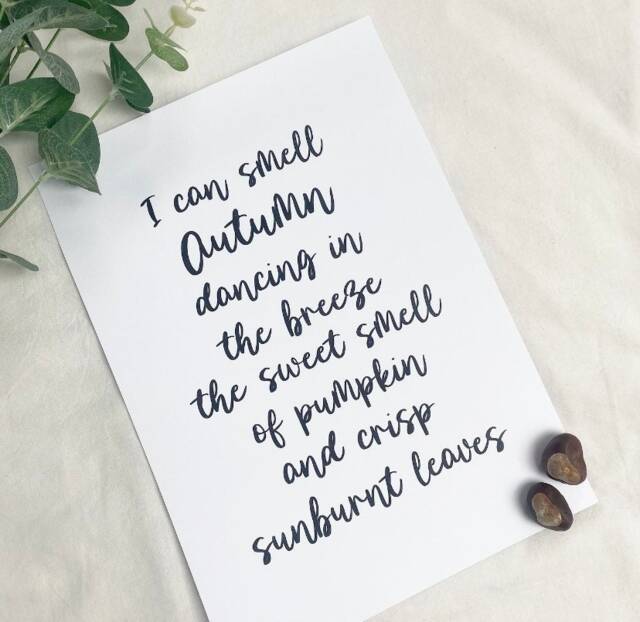 I can smell
Autumn
dancing in
the breeze
the sweet smell
of pumpkin
and crisp
sunburnt leaves